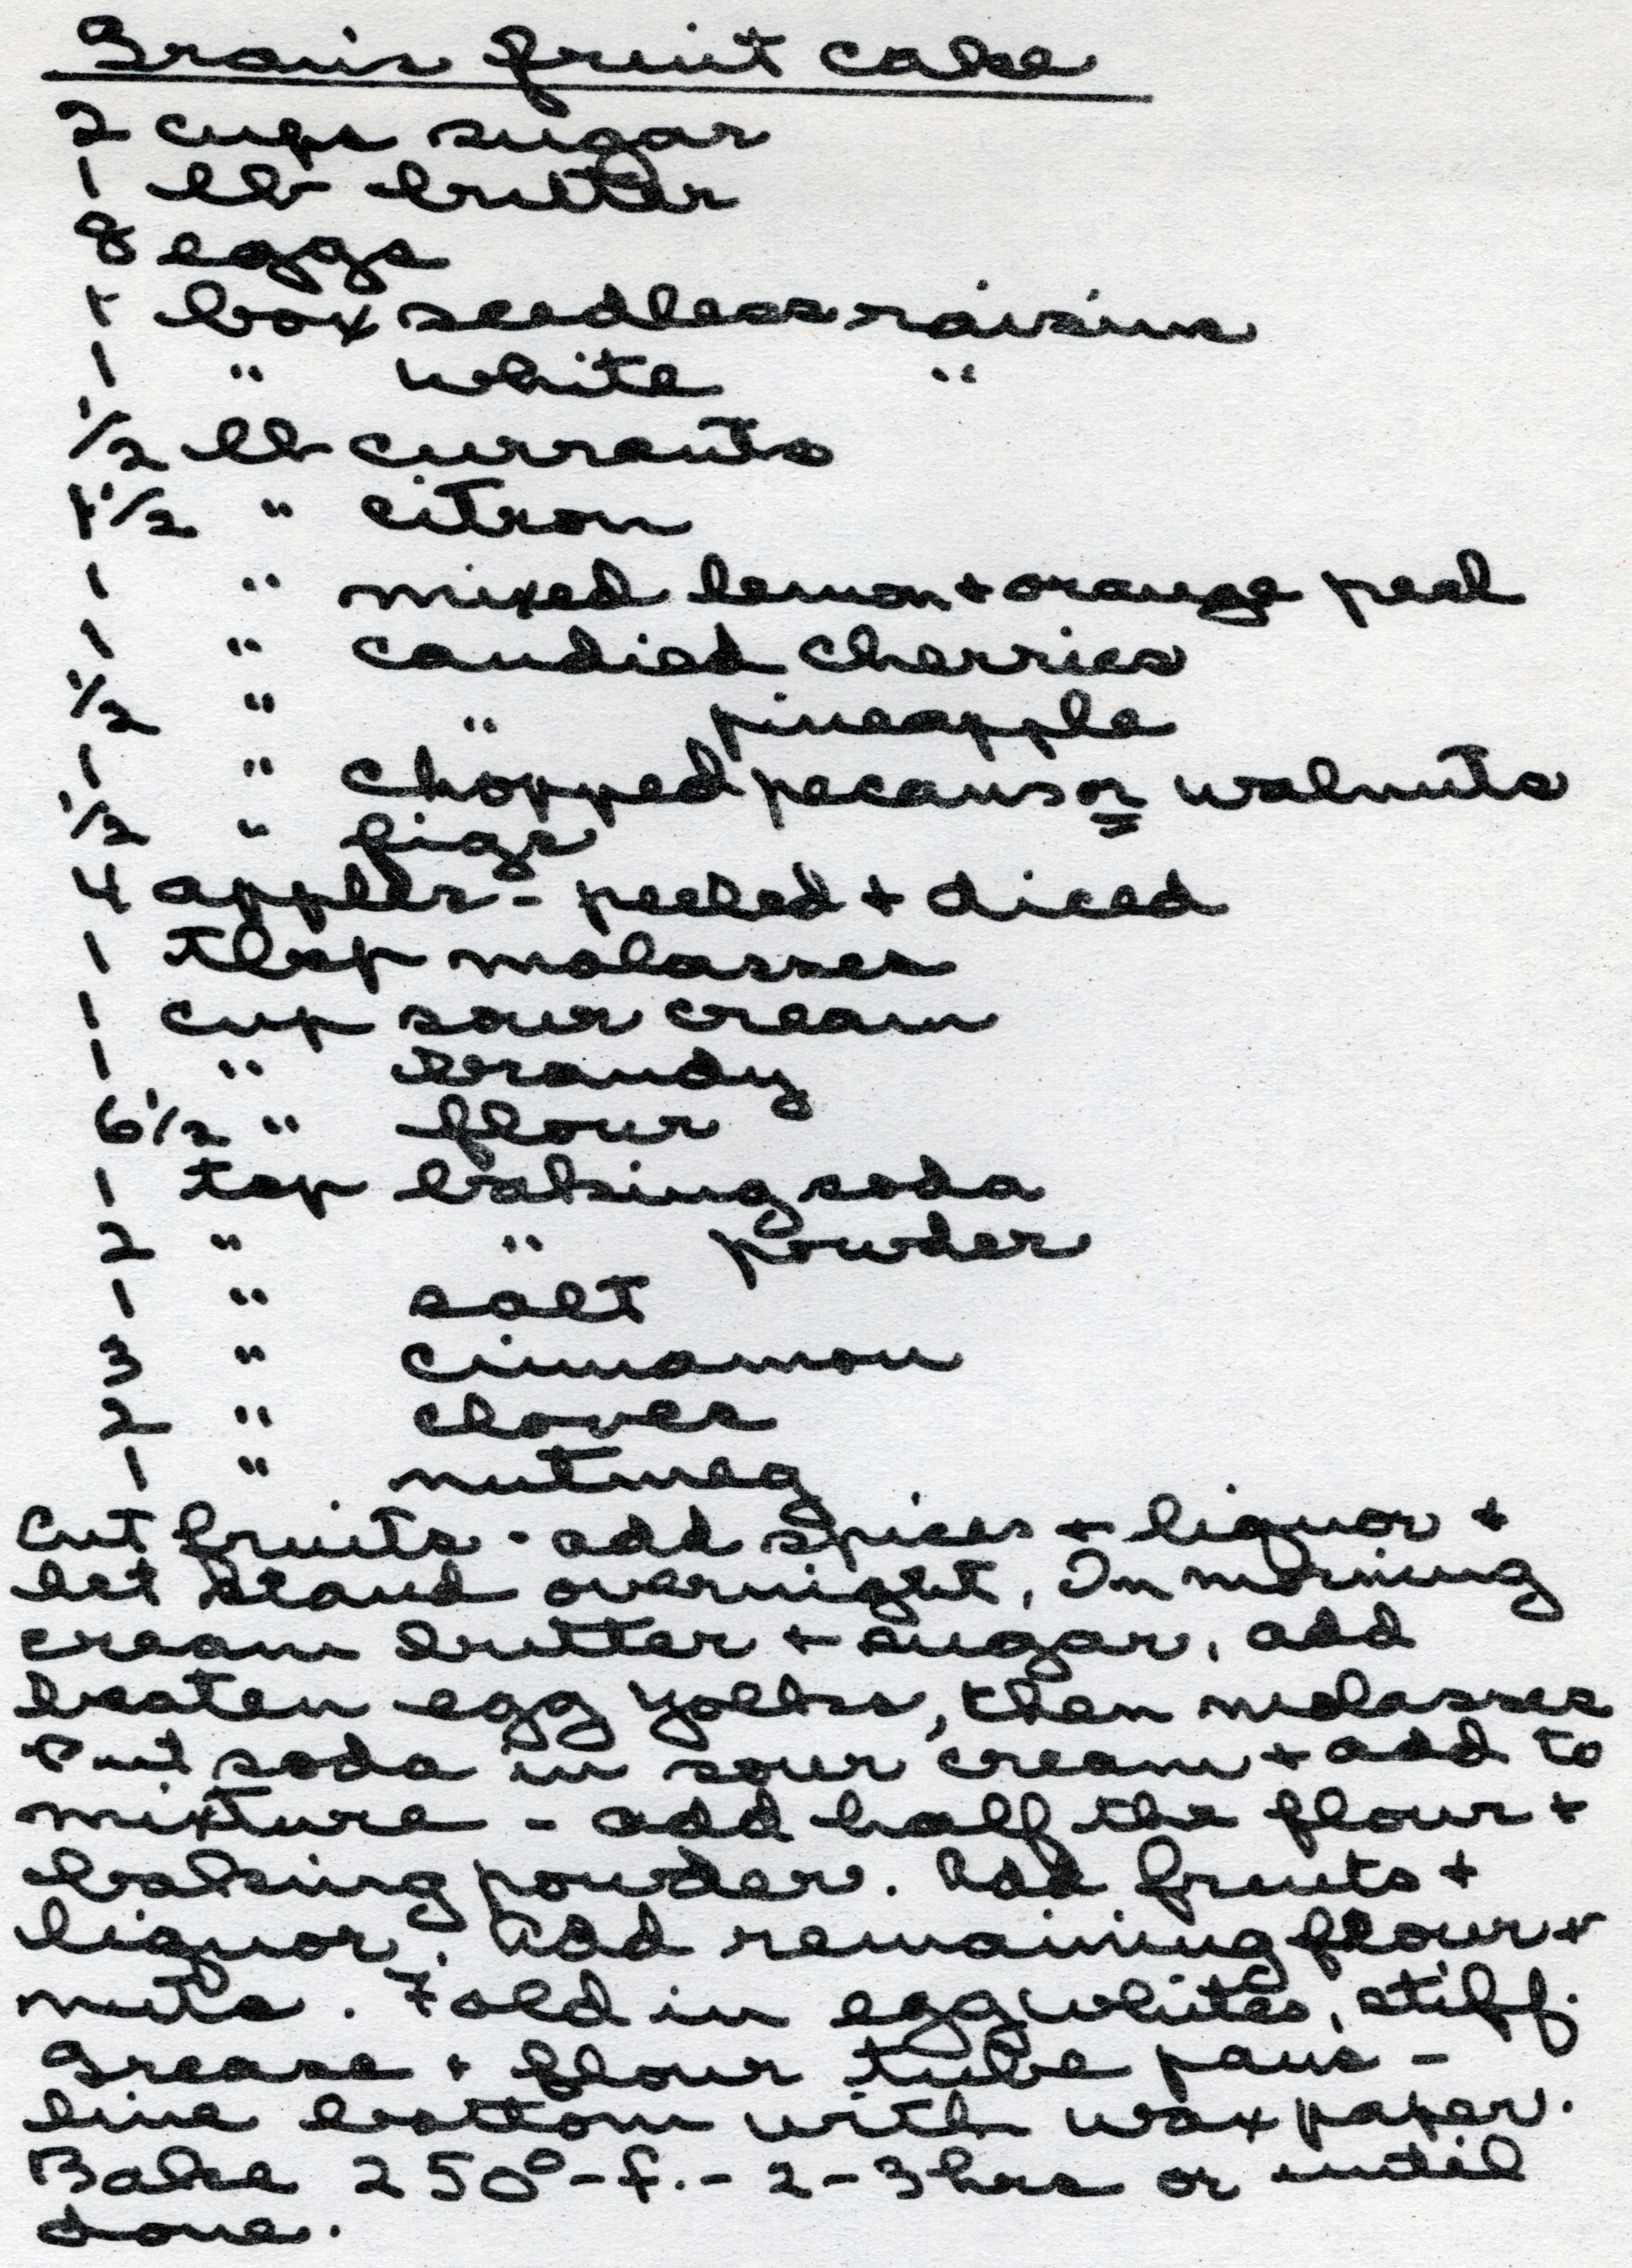 Gram's fruit cake
2 cups sugar
1 lb butter
8 eggs
1 box seedless raisins
1 " white "
1/2 lb currants
1 1/2 " citron
1 " mixed lemon + orange peel
1 " candied cherries
1/2 " " pineapple
1 " chopped pecans or walnuts
1/2 " figs
4 apples - peeled + diced
1 tbsp molasses
1 cup sour cream
1 " brandy
6 1/2 " flour
1 tsp baking soda
2 " " powder
1 " salt
3 " cinnamon
2 " cloves
1 " nutmeg
Cut fruits - add spices + liquor +
let stand overnight. In morning
cream butter + sugar, add
beaten egg yolks, then molasses
Put soda in sour cream + add to
mixture - add half the flour +
baking powder. Add fruits +
liquor. Add remaining flour +
nuts. Fold in egg whites, stiff.
Grease + flour tube pans -
line bottom with wax paper.
Bake 250° - f. - 2 - 3 hrs or until
done.